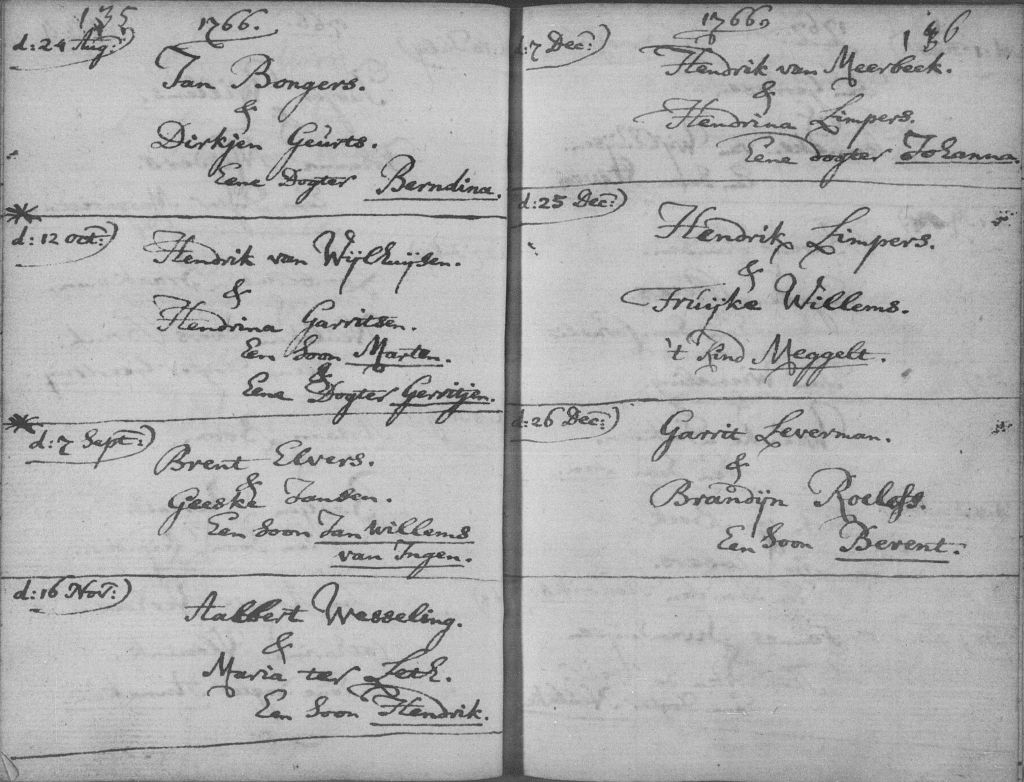 135
1766.
d: 24 Aug:)
Jan Bongers.
&
Dirkjen Geurts.
Eene Dogter Berndina.
d: 12 Oct:)
Hendrik van Wijlhuijsen.
&
Hendrina Garritsen.
Een Soon Marten.
&
Eene Dogter Gerritjen.
d: 7 Sept:)
Brent Elvers.
&
Geeske Jansen.
Een Soon Jan Willems
van Ingen.
d: 16 Nov:)
Aalbert Wesseling.
&
Maria ter Leth.
Een Soon Hendrik.
1766.
136
d: 7 Dec:)
Hendrik van Meerbeek.
&
Hendrina Limpers.
Eene dogter Johanna.
d: 25 Dec:)
Hendrik Limpers.
&
Fruijke Willems.
't Kind Meggelt.
d: 26 Dec:)
Garrit Leverman.
&
Brandijn Roelofs.
Een Soon Berent.